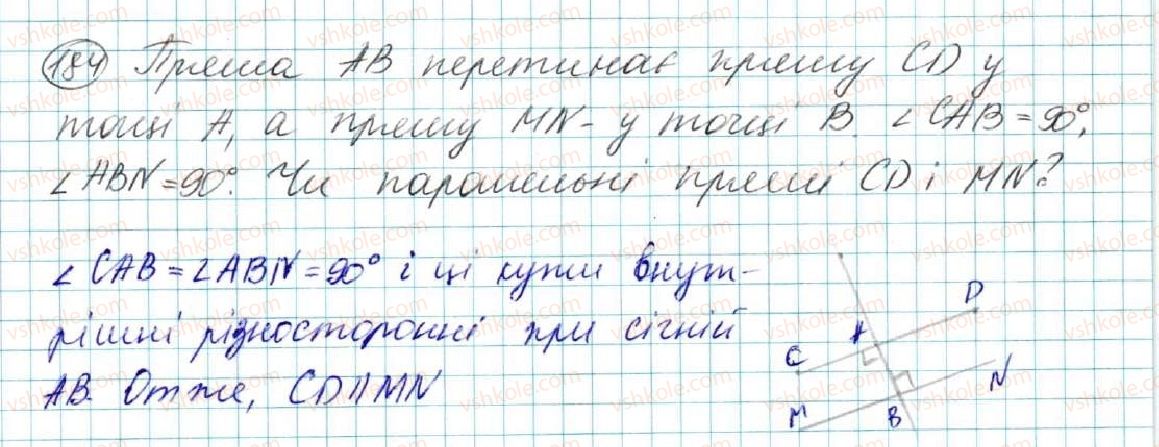 184 Пряма AB перетинає пряму CD у
точці A, а пряму MN - у точці B. ∠CAB = 90°,
∠ABN = 90°. Чи паралельні прямі CD і MN?
∠CAB = ∠ABN = 90° і ці кути внут-
рішні різносторонні при січній
AB. Отже, CD || MN
D
A
C
N
M
B
vshkole.com